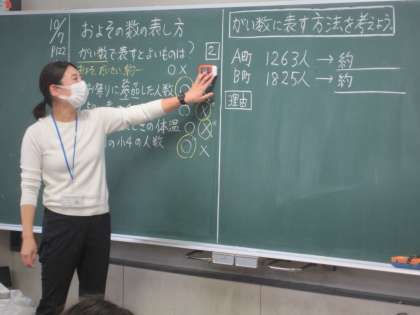 10/7
P122
およその数の表し方
がい数で表すとよいものは?
およそ、だいたい、約
○ ×
お祭りに参加した人数
の体温
の小4の人数
○ ×
がい数に表す方法を考えよう。
A町 1263人 → 約
B町 1825人 → 約
理由